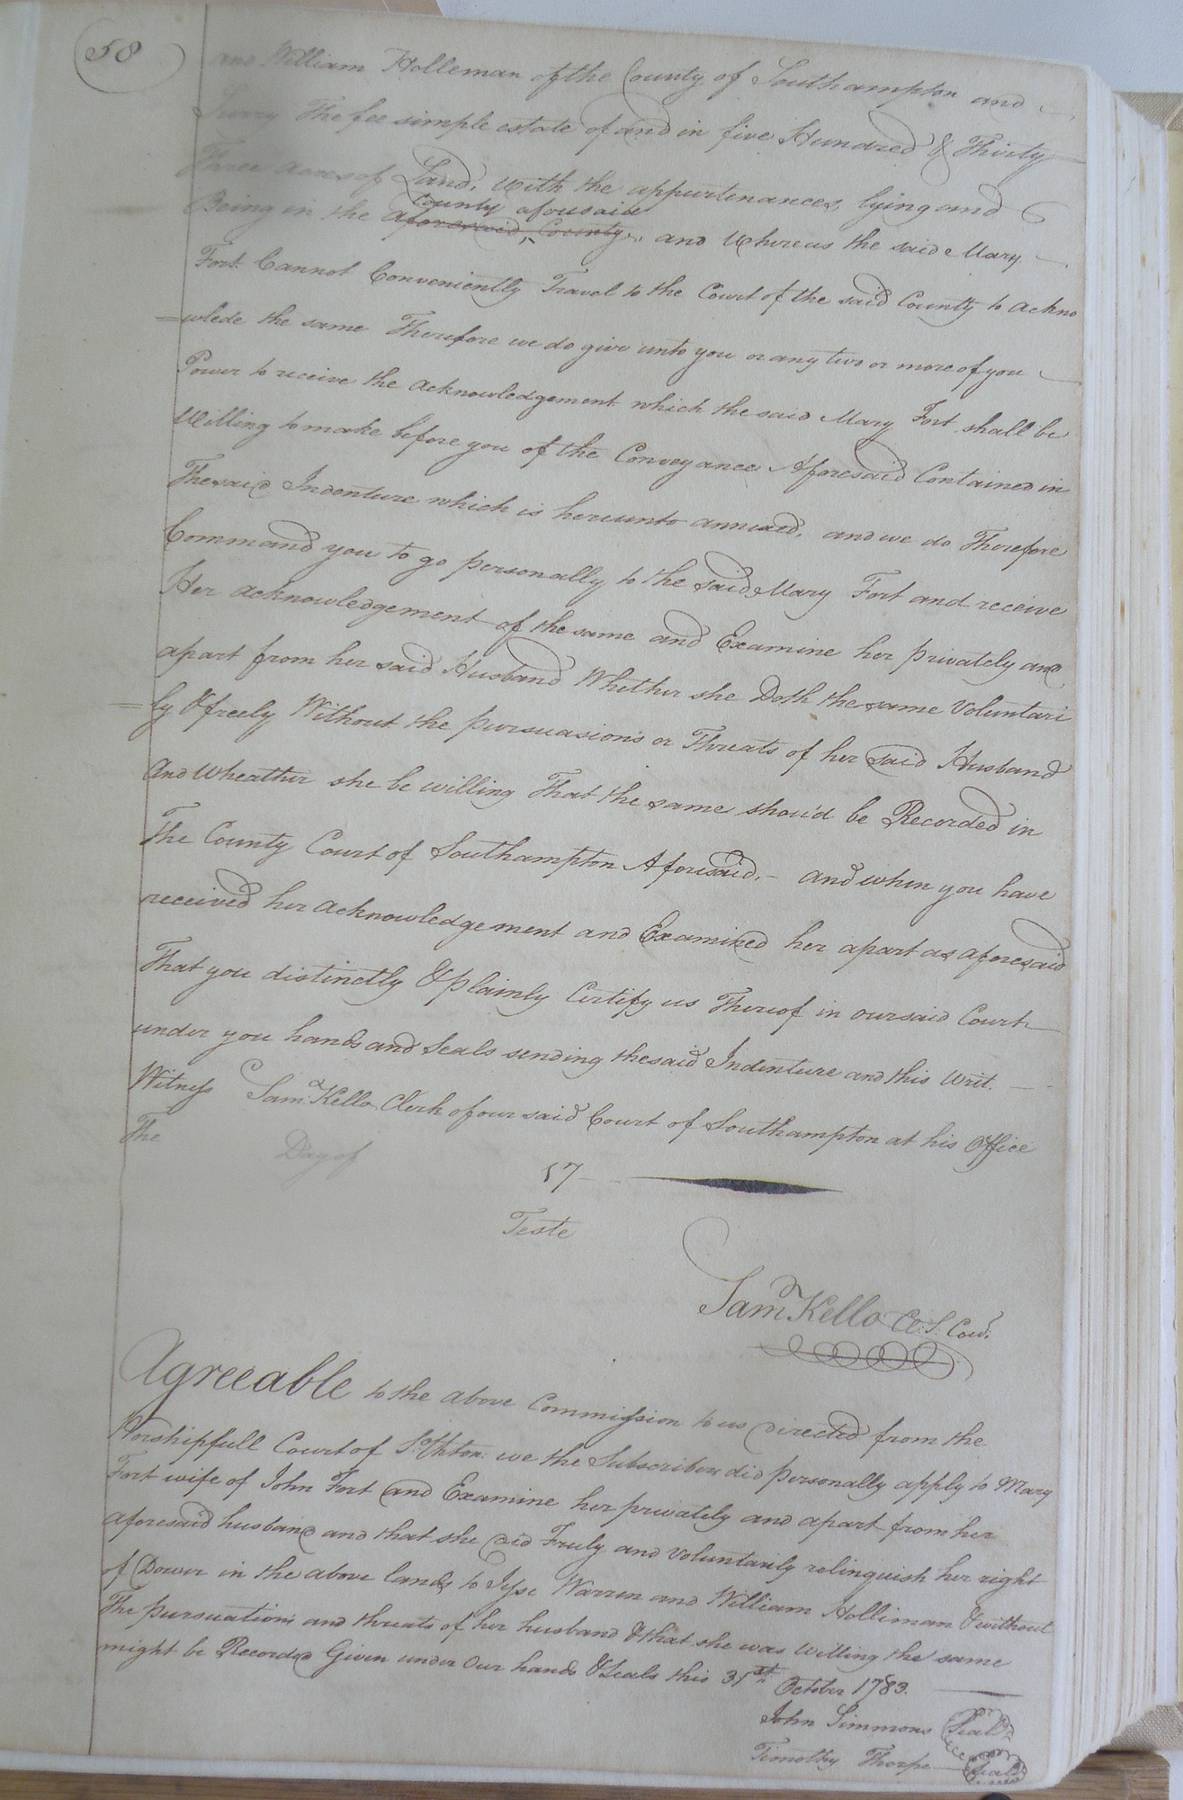 58
and William Holleman of the County of Southampton and
Surry The fee simple estate of and in five Hundred & Thirty
Three acres of Land, with the appurtenances, lying and
County aforesaid
Being in the aforesaid, County, and Whereas the said Mary
Fort Cannot Conveniently Travel to the Court of the said County to ackno
=wlede the same Therefore we do give unto you or any two or more of you
Power to receive the acknowledgement which the said Mary Fort shall be
Willing to make before you of the Conveyance Aforesaid Contained in
The said Indenture which is hereunto annixed, and we do Therefore
Command you to go personally to the said Mary Fort and receive
Her acknowledgement of the same and Examine her privately and
apart from her said Husband Whether she Doth the same Voluntari
=ly & freely Without the pursuasions or Threats of her said Husband
And Wheather she be willing That the same should be Recorded in
The County Court of Southampton Aforesaid, - and when you have
received her acknowledgement and Examined her apart as aforesaid
That you distinctly & plainly Certify us Thereof in our said Court
under you hands and Seals sending the said Indenture and this Writ.
Witness Saml Kello Clerk of our said Court of Southampton at his Office
The Day of 17
Teste
Saml Kello Cl. S. Cou.
Agreeable to the above Commission to us directed from the
Worshipfull Court of So.thton: we the Subscribers did personally apply to Mary
Fort wife of John Fort and Examine her privately and apart from her
aforesaid husband and that she did Truly and Voluntarily relinquish her right
of Dower in the above lands to Jesse Warren and William Holliman & without
The pursuations and threats of her husband & that she was Willing the same
might be Recorded Given under Our hands & Seals this 31st October 1783.
John Simmons Seal
Timothy Thorpe Seal